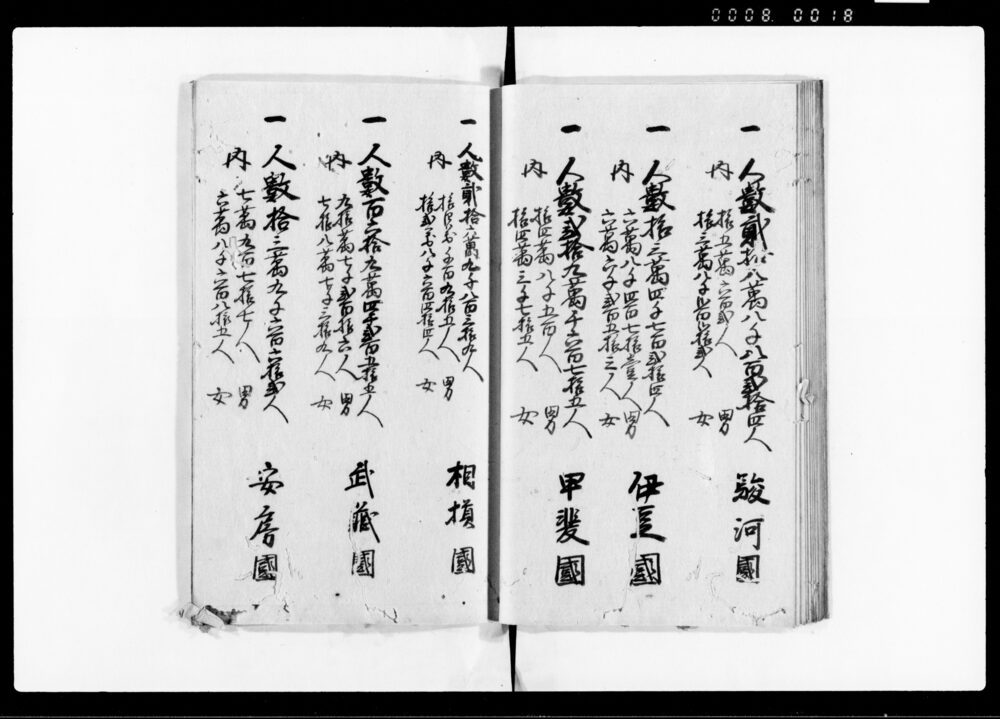 0008. 0018
一 人數貳拾八萬八千八百貳拾四人 駿河國
内 拾五萬六百貳人 男
拾三萬八千貳百貳拾貳人 女
一 人數拾三萬四千七百貳拾四人 伊豆國
内 六萬八千四百七拾壹人 男
六萬六千貳百五拾三人 女
一 人數貳拾九萬千六百七拾五人 甲斐國
内 拾四萬八千六百人 男
拾四萬三千七拾五人 女
一 人數貳拾六萬九千八百三拾九人 相摸國
内 拾四萬五千百九拾五人 男
拾貳萬四千六百四拾四人 女
一 人數百六拾九萬四千貳百五拾五人 武藏國
内 九拾萬七千貳百拾六人 男
七拾八萬七千三拾九人 女
一 人數拾三萬九千六百六拾貳人 安房國
内 七萬九百七拾七人 男
六萬八千六百八拾五人 女